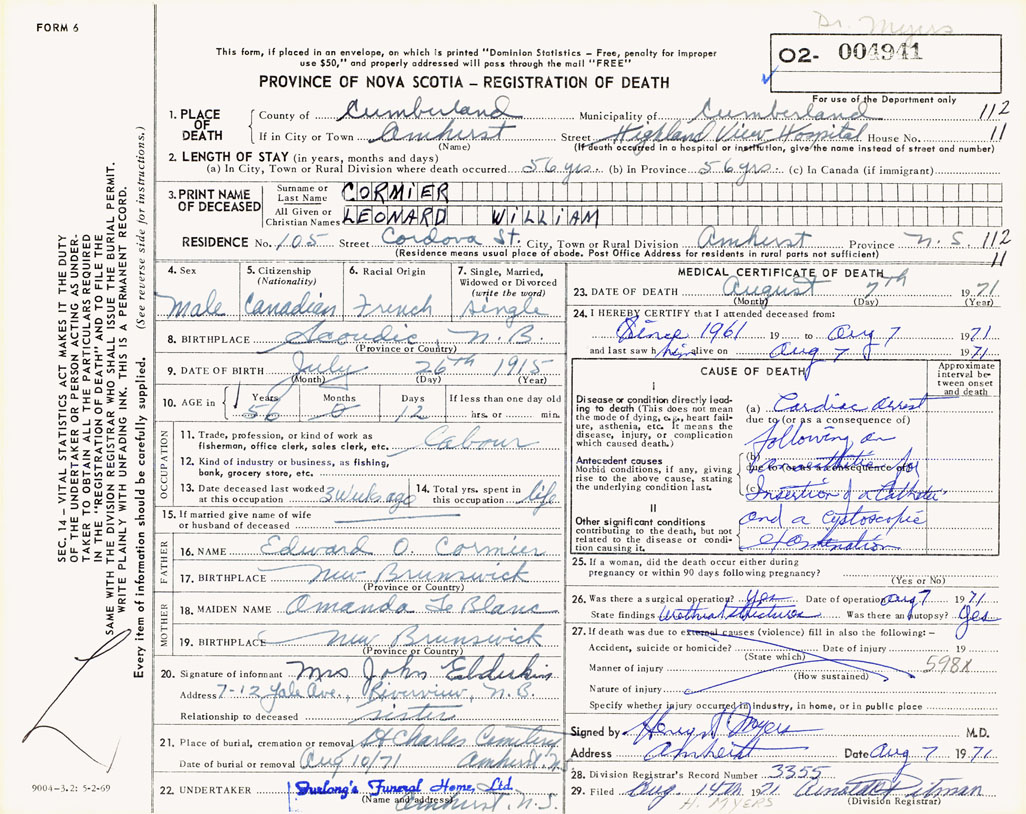 FORM 6
Dr. Myers
O2- 004941
This form, if placed in an envelope, on which is printed "Dominion Statistics - Free, penalty for improper
use $50," and properly addressed will pass through the mail "FREE"
PROVINCE OF NOVA SCOTIA - REGISTRATION OF DEATH
For use of the Department only
1. PLACE OF DEATH
County of Cumberland Municipality of Cumberland 112
If in City or Town Amherst Street Highland View Hospital House No. 11
(Name) (If death occurred in a hospital or institution, give the name instead of street and number)
2. LENGTH OF STAY (in years, months and days)
(a) In City, Town or Rural Division where death occurred 56 yrs. (b) In Province 56 yrs. (c) In Canada (if immigrant)
3. PRINT NAME OF DECEASED
Surname or Last Name CORMIER
All Given or Christian Names LEONARD WILLIAM
RESIDENCE No. 105 Street Cordova St. City, Town or Rural Division Amherst Province N.S. 112
(Residence means usual place of abode. Post Office Address for residents in rural parts not sufficient) 11
4. Sex Male
5. Citizenship (Nationality) Canadian
6. Racial Origin French
7. Single, Married, Widowed or Divorced (write the word) Single
8. BIRTHPLACE Scoudic N.B.
(Province or Country)
9. DATE OF BIRTH July 26th 1915
(Month) (Day) (Year)
10. AGE in Years Months Days If less than one day old
56 0 12 hrs. or min.
OCCUPATION
11. Trade, profession, or kind of work as
fisherman, office clerk, sales clerk, etc. Labour
12. Kind of industry or business, as fishing,
bank, grocery store, etc.
13. Date deceased last worked at this occupation 3 wks ago
14. Total yrs. spent in this occupation life
15. If married give name of wife
or husband of deceased
FATHER
16. NAME Edward O. Cormier
17. BIRTHPLACE New Brunswick
(Province or Country)
MOTHER
18. MAIDEN NAME Amanda Le Blanc
19. BIRTHPLACE New Brunswick
(Province or Country)
20. Signature of informant Mrs John Elderkin
Address 7-12 Yale Ave., Riverview, N.B.
Relationship to deceased sister
21. Place of burial, cremation or removal St Charles Cemetery
Date of burial or removal Aug 10/71 Amherst N.S.
22. UNDERTAKER Furlong's Funeral Home, Ltd.
(Name and address) Amherst, N.S.
MEDICAL CERTIFICATE OF DEATH 11
23. DATE OF DEATH August 7th 1971
(Month) (Day) (Year)
24. I HEREBY CERTIFY that I attended deceased from:
Since 1961 19 to Aug 7 1971
and last saw him alive on Aug 7 1971
CAUSE OF DEATH
Approximate interval between onset and death
I
Disease or condition directly leading to death (This does not mean the mode of dying, e.g., heart failure, asthenia, etc. It means the disease, injury, or complication which caused death.)
(a) Cardiac arrest
due to (or as a consequence of)
following an
Antecedent causes
Morbid conditions, if any, giving rise to the above cause, stating the underlying condition last.
(b) anaesthetic for
due to (or as a consequence of)
(c) Insertion of a Catheter
II
Other significant conditions
contributing to the death, but not related to the disease or condition causing it.
and a cystoscopic
examination
25. If a woman, did the death occur either during
pregnancy or within 90 days following pregnancy?
(Yes or No)
26. Was there a surgical operation? Yes Date of operation Aug 7 1971
State findings urethral strictures Was there an autopsy? Yes
27. If death was due to external causes (violence) fill in also the following:-
Accident, suicide or homicide? Date of injury 19
(State which)
Manner of injury 598X
(How sustained)
Nature of injury
Specify whether injury occurred in industry, in home, or in public place
Signed by Henry T Myers M.D.
Address Amherst Date Aug 7 1971
28. Division Registrar's Record Number 3355
29. Filed Aug. 14th 1971 Pitman
H. MYERS (Division Registrar)
SEC. 14 - VITAL STATISTICS ACT MAKES IT THE DUTY
OF THE UNDERTAKER OR PERSON ACTING AS UNDER-
TAKER TO OBTAIN ALL THE PARTICULARS REQUIRED
IN THE "REGISTRATION OF DEATH" AND TO FILE THE
SAME WITH THE DIVISION REGISTRAR WHO SHALL ISSUE THE BURIAL PERMIT.
WRITE PLAINLY WITH UNFADING INK. THIS IS A PERMANENT RECORD.
Every item of information should be carefully supplied. (See reverse side for instructions.)
9004-3.2: 5-2-69